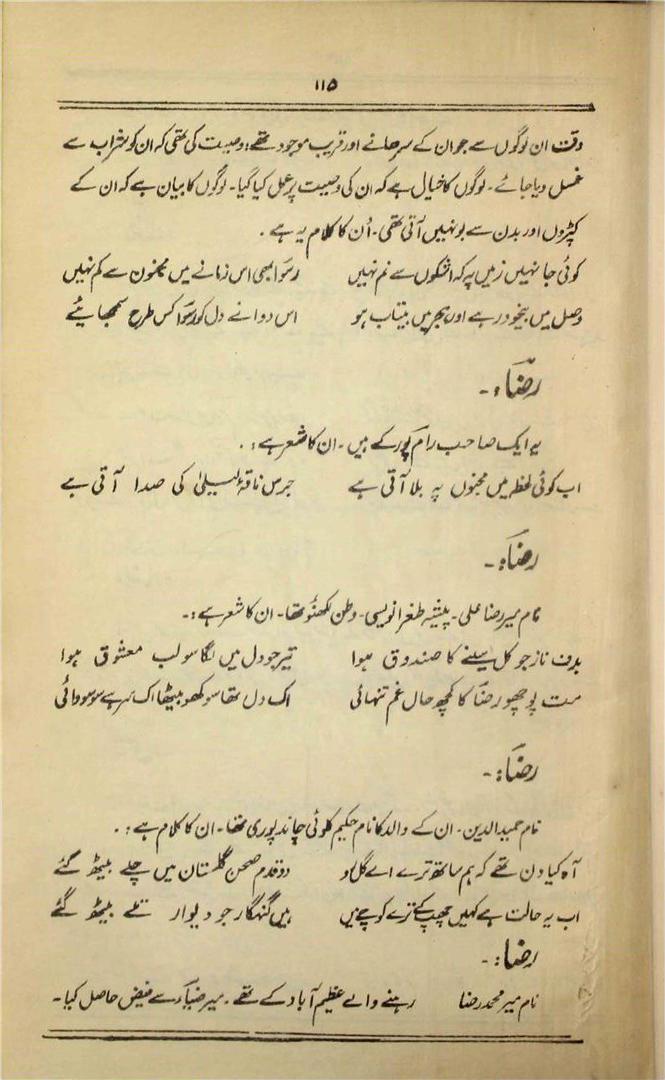 ۱۱۵
وقت ان لوگوں سے جو ان کے سرھانے اور قریب موجود تھے؛ وصیت کی تھی کہ ان کو شراب سے
غسل دیا جائے۔ لوگوں کا خیال ہے کہ ان کی وصیت پر عمل کیا گیا۔ لوگوں کا بیان ہے کہ ان کے
کپڑوں اور بدن سے بو نہیں آتی تھی۔ اُن کا کلام یہ ہے .
کوئی جا نہیں زمیں پہ کہ اشکوں سے نم نہیں رسوا بھی اس زمانے میں مجنون سے کم نہیں
وصل میں بیخود رہے اور ہجر میں بیتاب ہو اس دوانے دل کو رسوا کس طرح سمجھایئے
رضاء :۔
یہ ایک صاحب رام پور کے ہیں۔ ان کا شعر ہے : .
اب کوئی لحظہ میں مجنوں پہ بلا آتی ہے جرس ناقۂ لیلیٰ کی صدا آتی ہے
رضا :۔
نام میر رضا علی۔ پیشہ طغرا نویسی۔ وطن لکھنؤ تھا۔ ان کا شعر ہے :۔
ہدف ناز جو کل سینے کا صندوق ہوا تیر جو دل میں لگا سو لب معشوق ہوا
مت پوچھو رضا کا کچھ حال غم تنہائی اک دل تھا سو کھو بیٹھا اک سر ہے سو سودائی
رضا :۔
نام حمید الدین۔ ان کے والد کا نام حکیم کلوئی چاند پوری تھا۔ ان کا کلام ہے : .
آہ کیا دن تھے کہ ہم ساتھ ترے اے گل رو دو قدم صحن گلستان میں چلے بیٹھ گئے
اب یہ حالت ہے کہیں چھپ کے ترے کوچے میں ہیں گنہگار جو دیوار تلے بیٹھ گئے
رضا :۔
نام میر محمد رضا رہنے والے عظیم آباد کے تھے۔ میر ضیاء سے فیض حاصل کیا۔